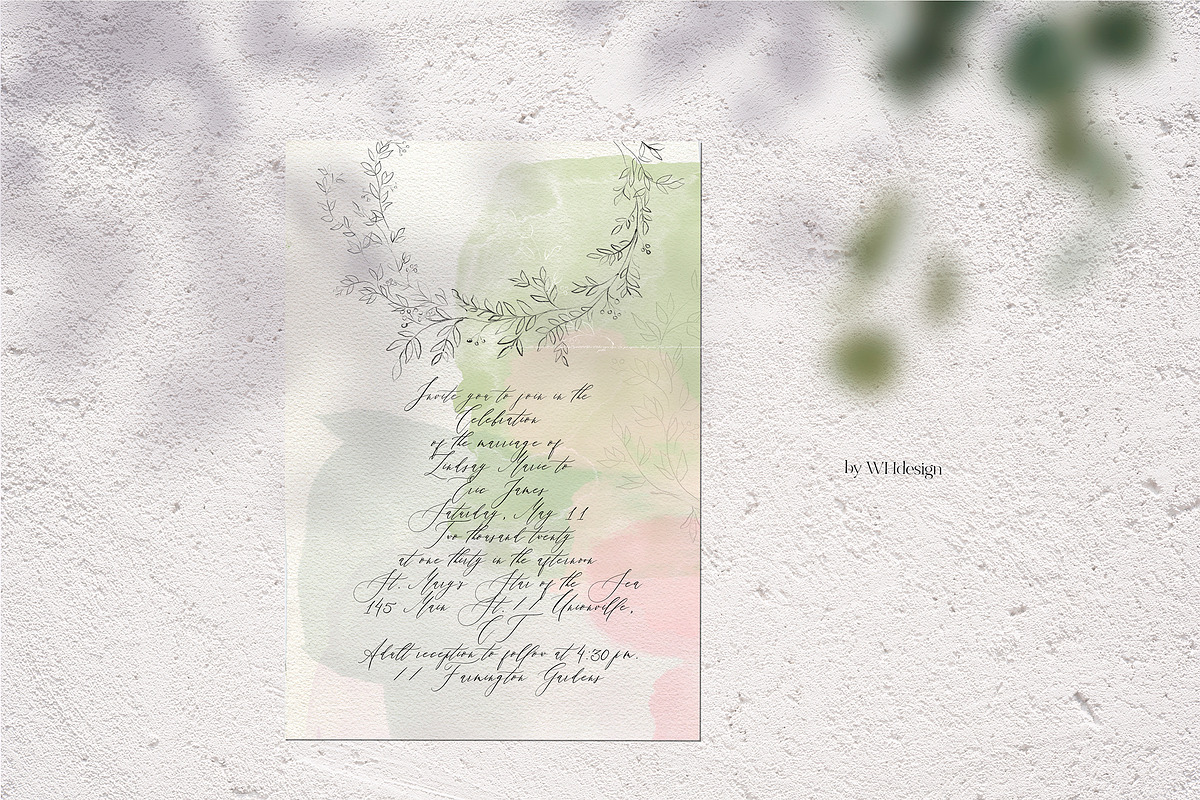 Invite you to join in the
Celebration
of the marriage of
Lindsay Marie to
Eric James
Saturday, May 11
Two thousand twenty
at one thirty in the afternoon
St. Mary's Star of the Sea
145 Main St. // Unionville,
CT
Adult reception to follow at 4:30 pm.
// Farmington Gardens
by WHdesign